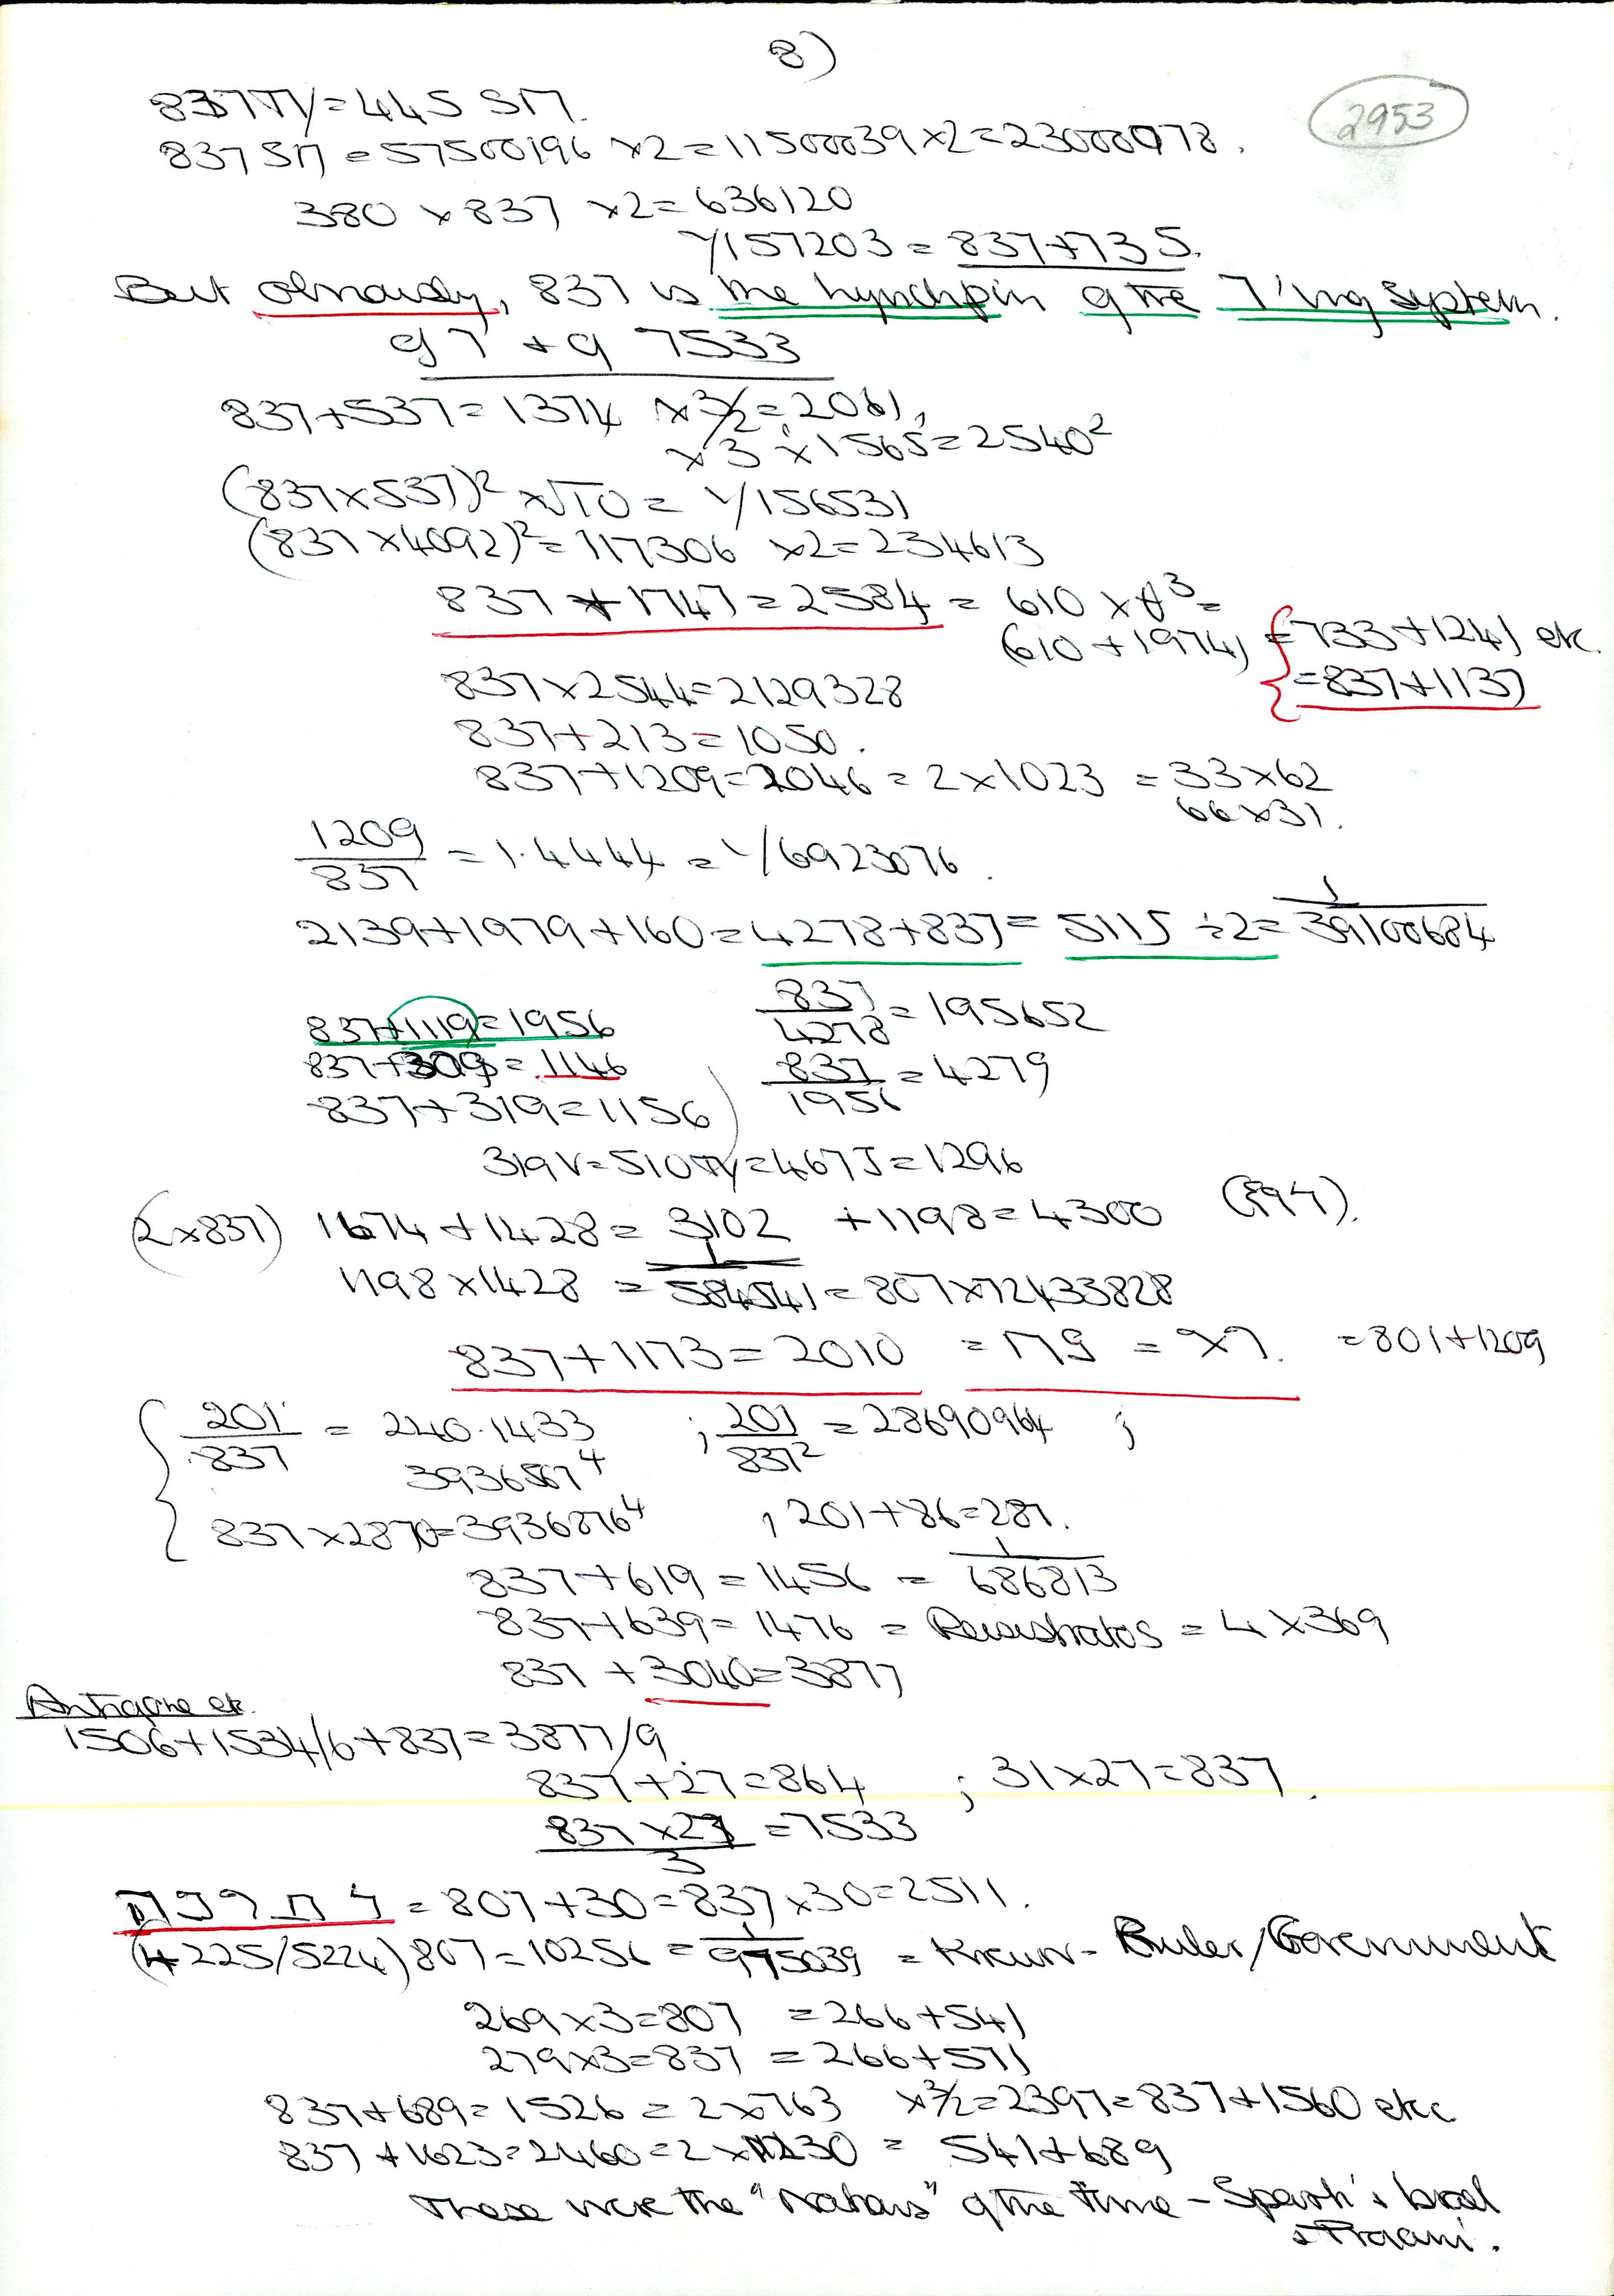 8)
2953
837π/=445 SΠ.
837 SΠ = 57500196 ×2=11500039×2=23000078.
380 × 837 ×2= 636120
1/157203 = 837+735.
But obviously, 837 is the lynchpin of the 7'ing System.
of 7 + of 7533
837+537=1374 ×3/2=2061,
×3 ×1565=2540²
(837×537)² ×√10 = 1/156531
(837×4092)²=117306 ×2=234613
837+1747=2584 = 610 ×ϕ³=
(610+1974) =733+1241 etc.
=837+1137
837×2544=2129328
837+213=1050.
837+1209=2046 = 2×1023 = 33×62
66×31.
1209/837 = 1.4444 = 1/6923076.
2139+1979+160=4278+837= 5115 ÷2= 1/39100684
837+1119=1956 837/4278=195652
837+309=1146 837/1956=4279
837+319=1156
319V=510π/=467J=1296
(2×837) 1674+1428= 3102 +1198=4300
1198×1428 = 1/584541=807×72433828
837+1173=2010 = =801+1209
201/837 = 240.1433 ; 201/837²=28690964 ;
3936567⁴
837×287=3936876⁴ , 201+86=287.
837+619=1456 = 1/686813
837+639=1476 = Peisistratos = 4×369
837 +3040=3877
Antigone etc.
1506+1534/6+837=3877/9.
837+27=864 ; 31×27=837.
837×27/3 =7533
= 807+30=837×30=2511.
(4225/5224)807=10256 = 1/975039 = Ruler/Government
269×3=807 =266+541
279×3=837 =266+571
837+689=1526=2×763 ×3/2=2397=837+1560 etc.
837+1623=2460=2×1230 = 541+689
These were the "Nations" of the time -